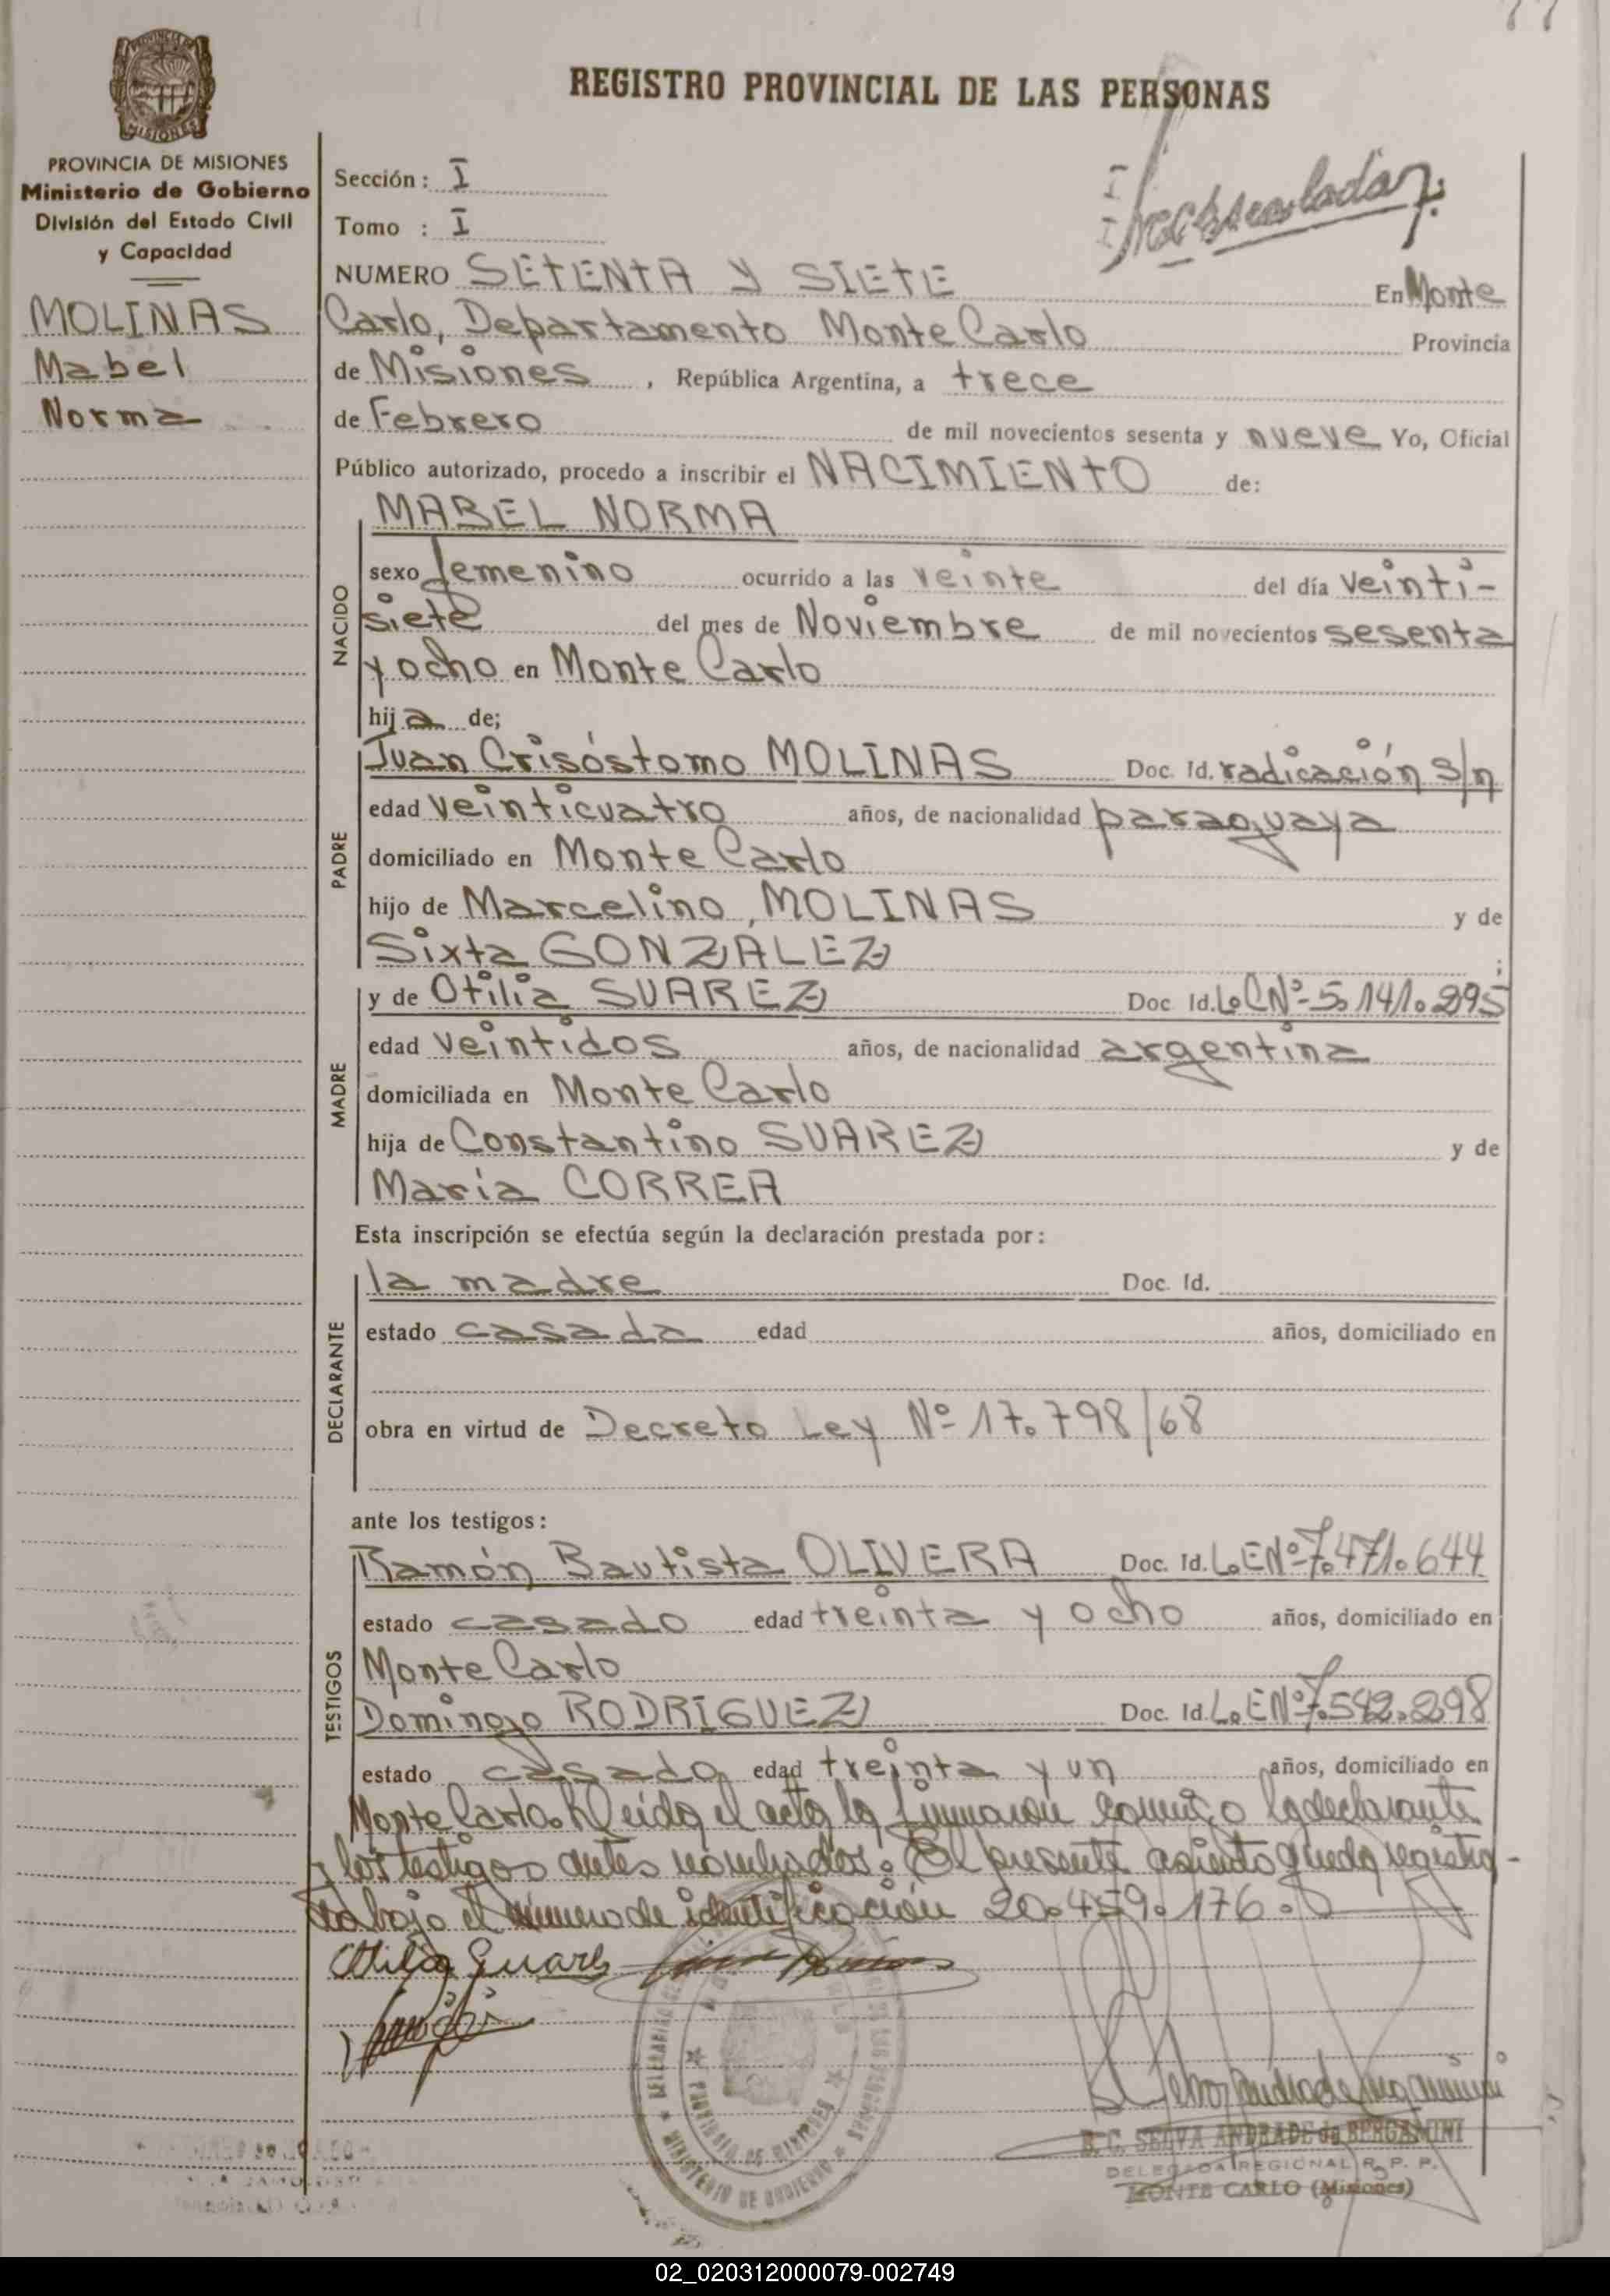 77
REGISTRO PROVINCIAL DE LAS PERSONAS
PROVINCIA DE MISIONES
MISIONES
PROVINCIA DE MISIONES
Ministerio de Gobierno
División del Estado Civil
y Capacidad
MOLINAS
Mabel
Norma
Sección: I
Tomo : I
NUMERO SETENTA Y SIETE En Monte
Carlo, Departamento Monte Carlo Provincia
de Misiones, República Argentina, a trece
de Febrero de mil novecientos sesenta y nueve Yo, Oficial
Público autorizado, procedo a inscribir el NACIMIENTO de:
NACIDO
MABEL NORMA
sexo femenino ocurrido a las veinte del día veinti-
siete del mes de Noviembre de mil novecientos sesenta
y ocho en Monte Carlo
hija de;
PADRE
Juan Crisóstomo MOLINAS Doc. Id. radicación s/n
edad veinticuatro años, de nacionalidad paraguaya
domiciliado en Monte Carlo
hijo de Marcelino, MOLINAS y de
Sixta GONZALEZ ;
MADRE
y de Otilia SUAREZ Doc Id. L.C Nº 5.141.295
edad veintidos años, de nacionalidad argentina
domiciliada en Monte Carlo
hija de Constantino SUAREZ y de
María CORREA
Esta inscripción se efectúa según la declaración prestada por:
DECLARANTE
la madre Doc. Id.
estado casada edad años, domiciliado en
obra en virtud de Decreto Ley Nº 17.798/68
ante los testigos:
TESTIGOS
Ramón Bautista OLIVERA Doc. Id. L.E Nº 7.471.644
estado casado edad treinta y ocho años, domiciliado en
Monte Carlo
Domingo RODRIGUEZ Doc. Id. L.E Nº 7.542.298
estado casado edad treinta y un años, domiciliado en
Monte Carlo. Leida el acta la firmaron conmigo la declarante
y los testigos antes nombrados. El presente asiento queda registra-
do bajo el número de identificación 20.459.176.
Otilia Suarez
PROVINCIA DE MISIONES
MINISTERIO DE GOBIERNO
B. C. SELVA ANDRADE de BERGAMINI
DELEGADA REGIONAL R. P. P.
MONTE CARLO (Misiones)
02_020312000079-002749